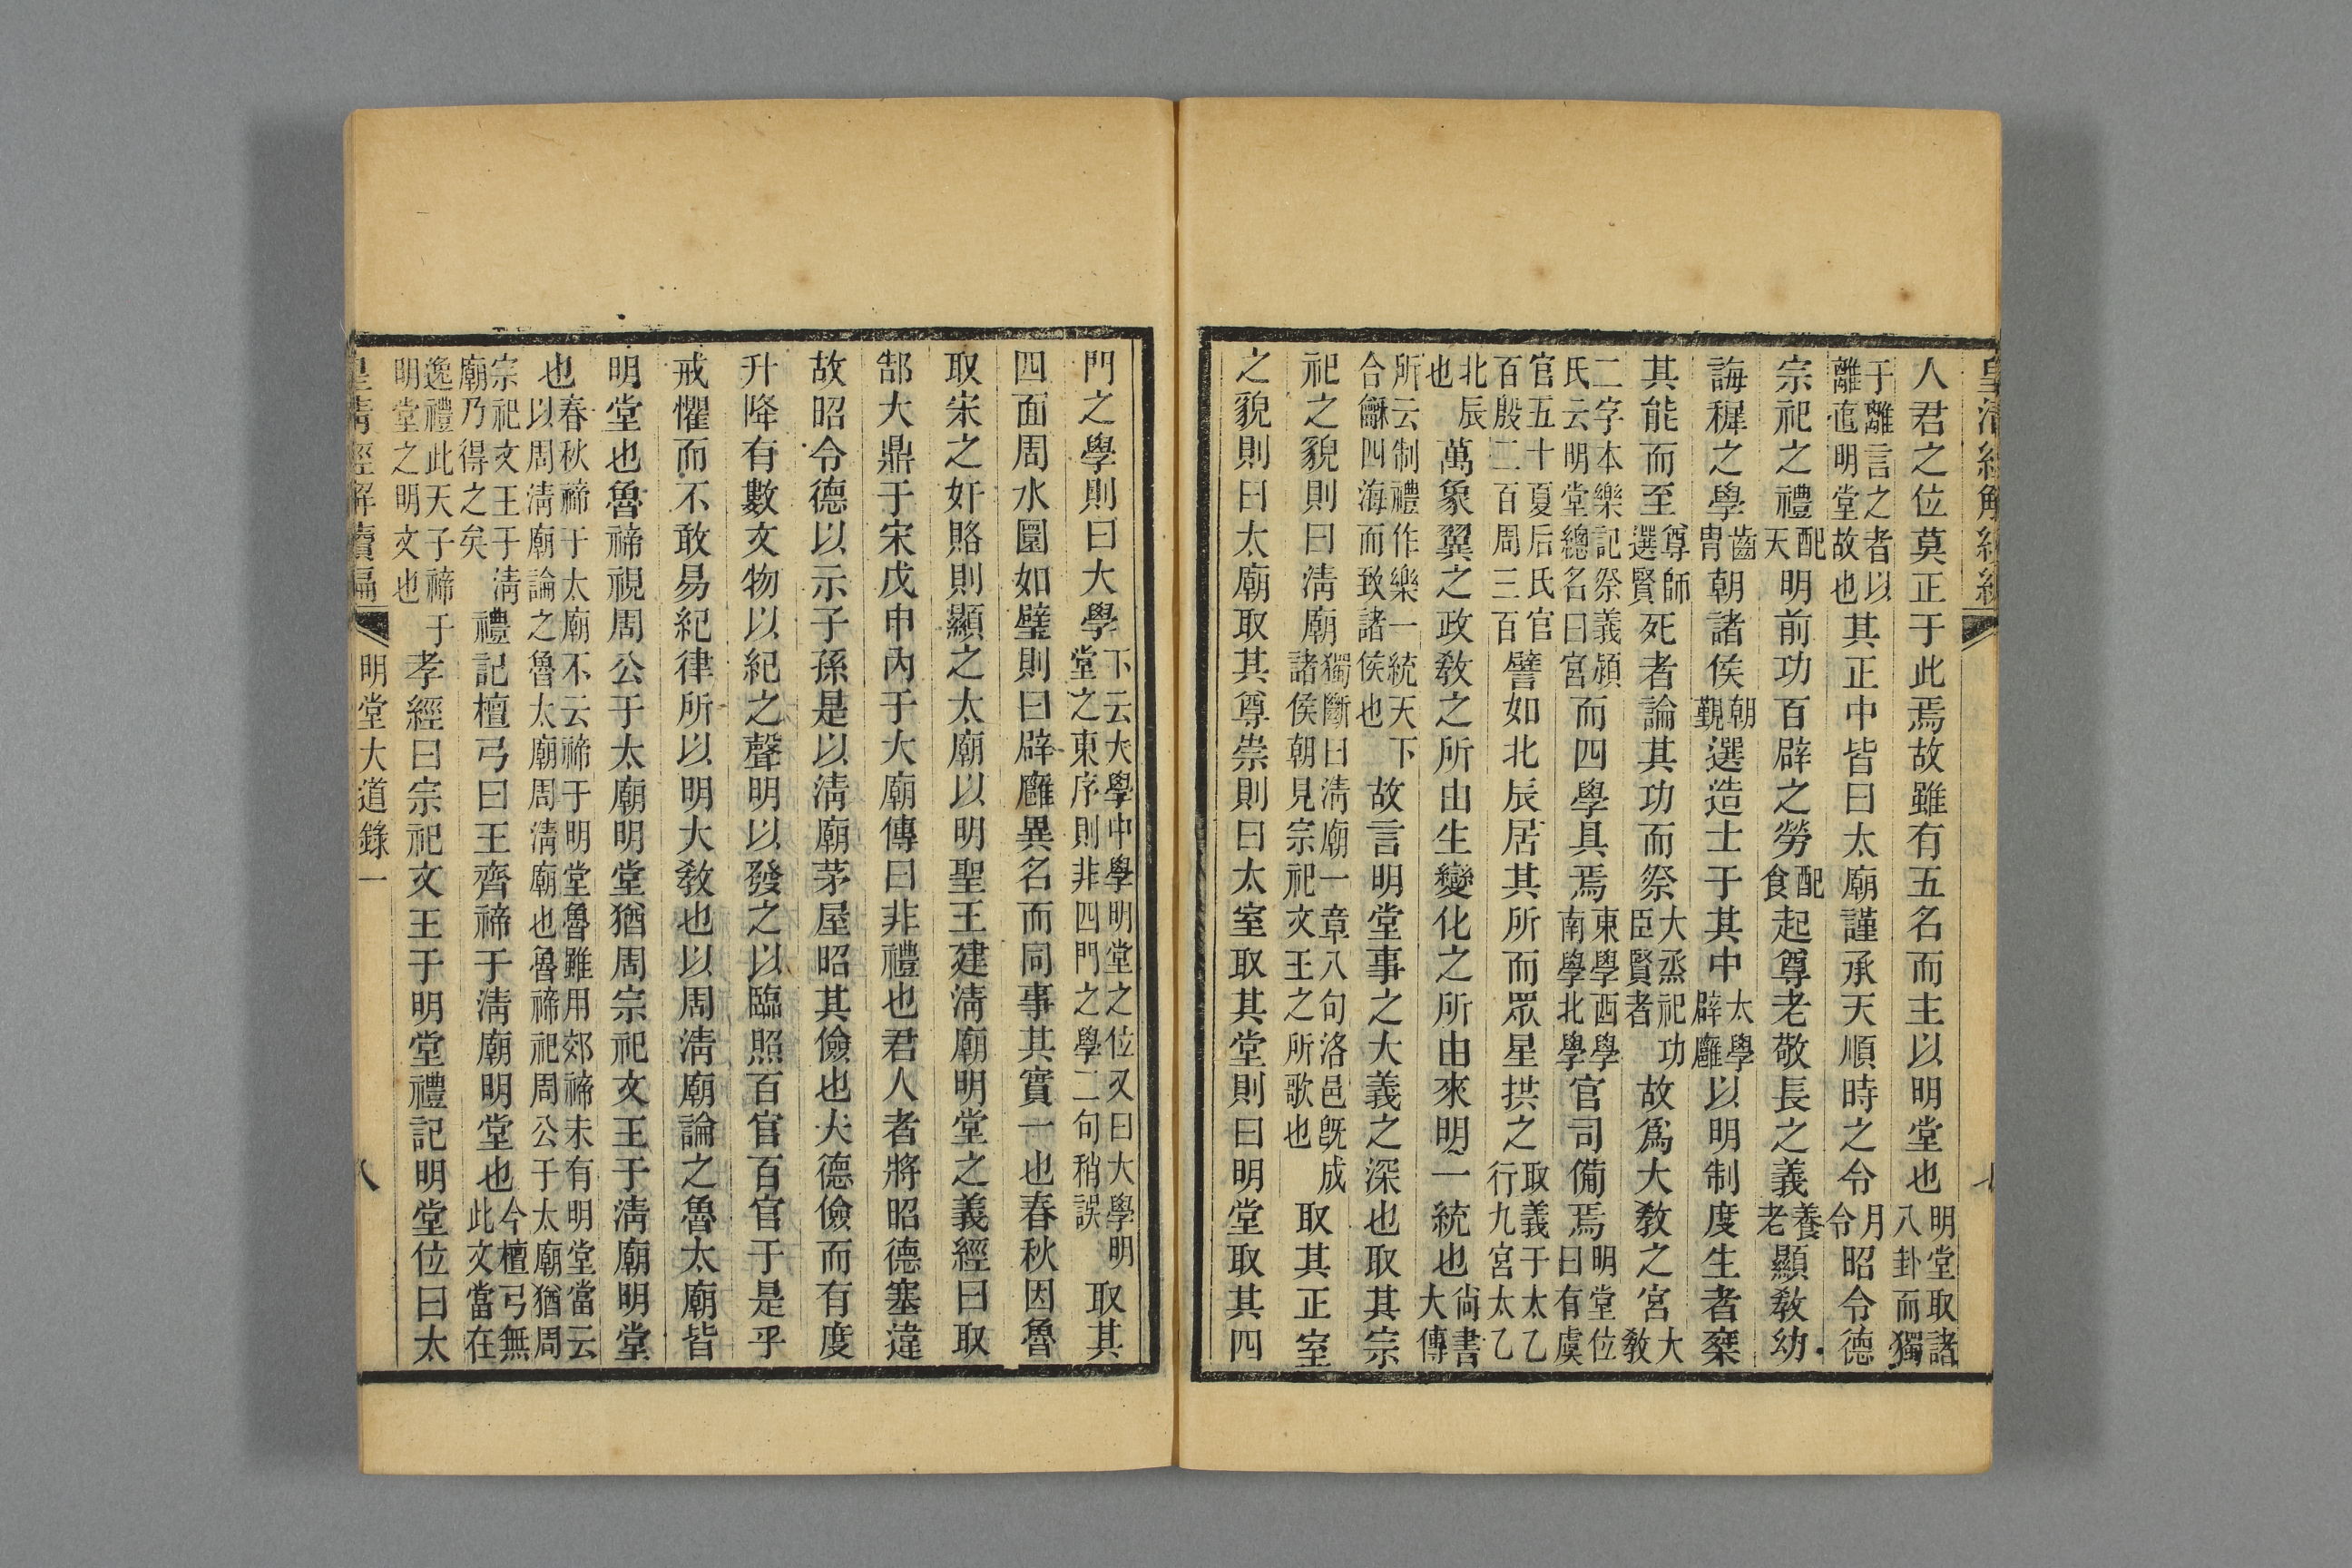 皇清經解續編
人君之位莫正于此焉故雖有五名而主以明堂也明堂取諸八卦而獨
于離言之者以離明堂故也其正中皆曰太廟謹承天順時之令月令昭令德
宗祀之禮配天明前功百辟之勞配食起尊老敬長之義養老顯敎幼
誨穉之學齒胄朝諸侯朝覲選造士于其中太學辟廱以明制度生者椉
其能而至尊師選賢死者論其功而祭大烝祀功臣賢者故爲大敎之宮大敎
二字本樂記祭義潁氏云明堂總名曰宮而四學具焉東學西學南學北學官司備焉明堂位曰有虞
官五十夏后氏官百殷二百周三百譬如北辰居其所而眾星拱之取義于太乙行九宮太乙
北辰也萬象翼之政敎之所由生變化之所由來明一統也尙書大傳
所云制禮作樂一統天下合龢四海而致諸侯也故言明堂事之大義之深也取其宗
祀之貌則曰淸廟獨斷曰淸廟一章八句洛邑旣成諸侯朝見宗祀文王之所歌也取其正室
之貌則曰太廟取其尊崇則曰太室取其堂則曰明堂取其四
門之學則曰大學下云大學中學明堂之位又曰大學明堂之東序則非四門之學二句稍誤取其
四面周水圜如璧則曰辟廱異名而同事其實一也春秋因魯
取宋之奸賂則顯之太廟以明聖王建淸廟明堂之義經曰取
郜大鼎于宋戊申內于大廟傳曰非禮也君人者將昭德塞違
故昭令德以示子孫是以淸廟茅屋昭其儉也夫德儉而有度
升降有數文物以紀之聲明以發之以臨照百官百官于是乎
戒懼而不敢易紀律所以明大敎也以周淸廟論之魯太廟皆
明堂也魯禘視周公于太廟明堂猶周宗祀文王于淸廟明堂
也春秋禘于太廟不云禘于明堂魯雖用郊禘未有明堂當云以周淸廟論之魯太廟周淸廟也魯禘祀周公于太廟猶周
宗祀文王于淸廟乃得之矣禮記檀弓曰王齊禘于淸廟明堂也今檀弓無此文當在
逸禮此天子禘于明堂之明文也孝經曰宗祀文王于明堂禮記明堂位曰太
皇清經解續編　明堂大道錄一　八